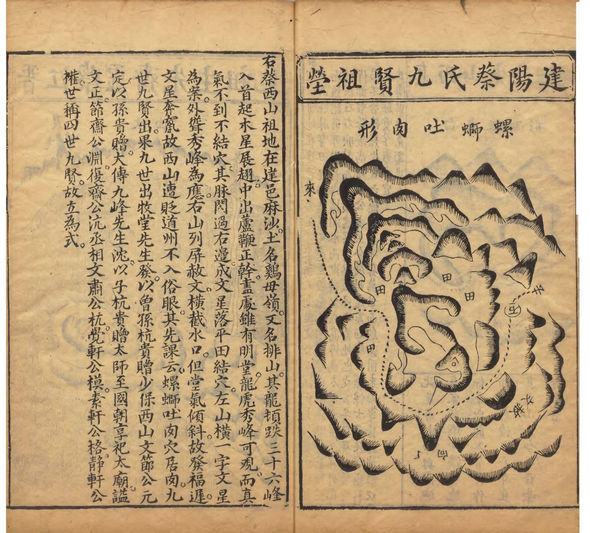 建陽蔡氏九賢祖塋
螺螄吐肉形
來
田
田
田
田
右蔡西山祖地在建邑麻沙土名鷄母嶺又名排山其龍頓跌三十六峰
入首起木星展翅中出蘆鞭正幹盡處雖有明堂龍虎秀峰可觀而真
氣不到不結穴其脉閃過右邊成文星落平田結穴左山橫一字文星
為案外聳秀峰為應右山列屏赦文橫截水口但堂氣傾斜故發福遲
文星奔竄故西山遭貶道州不入俗眼其先課云螺螄吐肉穴居肉九
世九賢出果九世出牧堂先生發以曾孫杭貴贈少保西山文節公元
定以孫貴贈太傅九峰先生沈以子杭貴贈太師至國朝享祀太廟謚
文正節齋公淵復齋公沆丞相文肅公杭覺軒公模素軒公格靜軒公
權世稱四世九賢故立為式